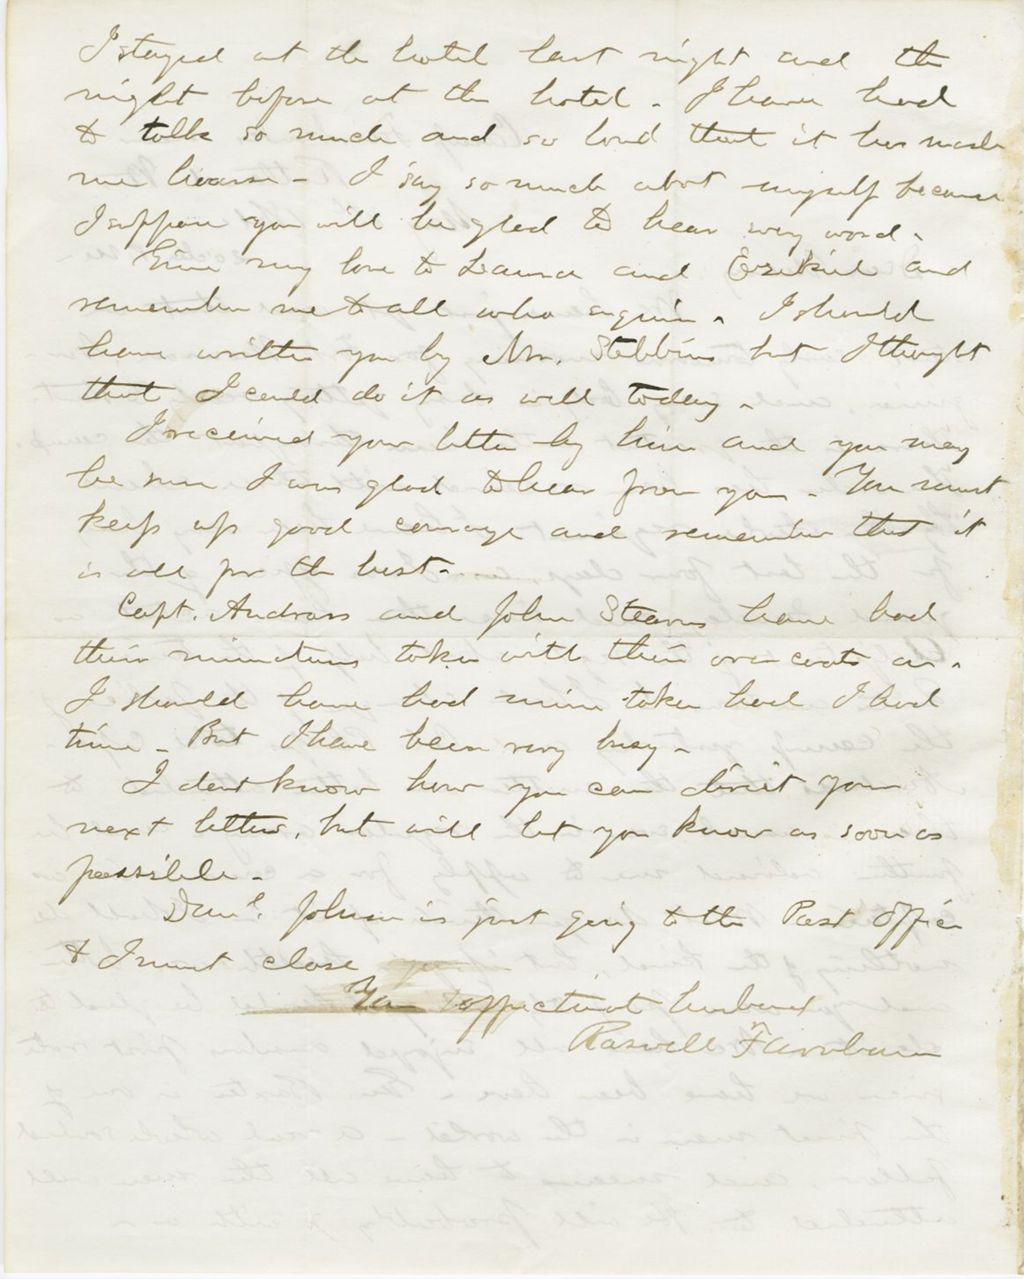 I stayed at the hotel last night and the
night before at the hotel. I have had
to talk so much and so loud that it has made
me hoarse - I say so much about myself because
I suppose you will be glad to hear every word.
Give my love to Laura and Ezekiel and
remember me to all who enquire. I should
have written you by Mr. Stebbins but I thought
that I could do it as well today.
I received your letter by him and you may
be sure I am glad to hear from you. You must
keep up good courage and remember that it
is all for the best.
Capt. Andross and John Stearns have had
their miniatures taken with their over coats on.
I should have had mine taken had I had
time - But I have been very busy -
I dont know how you can direct your
next letters, but will let you know as soon as
possible.
Danl. Johnson is just going to the Post Office
& I must close
Your affectionate husband
Roswell Farnham